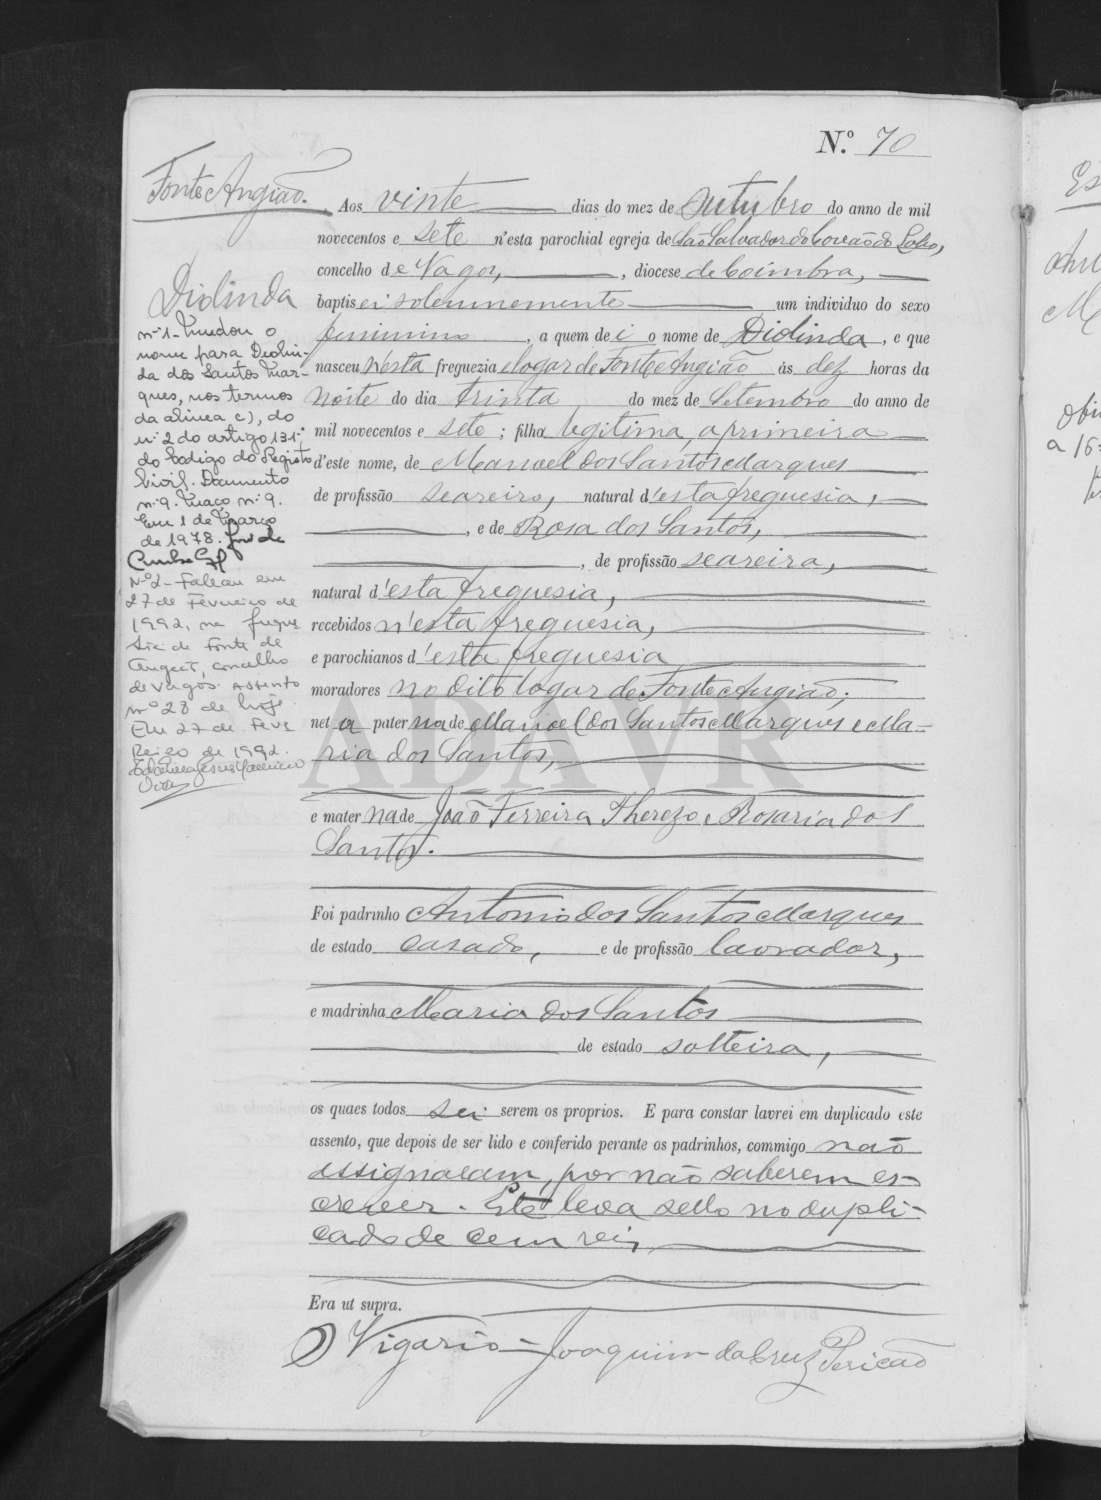 N.º 70
Fonte Angião.
Aos vinte dias do mez de Outubro do anno de mil
novecentos e sete n'esta parochial egreja de São Salvador do Covão do Lobo,
concelho de Vagos, , diocese de Coimbra,
baptisei solemnemente um individuo do sexo
feminino , a quem dei o nome de Diolinda , e que
nasceu n'esta freguezia e logar de Fonte Angião ás dez horas da
noite do dia trinta do mez de Setembro do anno de
mil novecentos e sete ; filha legitima, a primeira
d'este nome, de Manoel dos Santos Marques
de profissão seareiro, natural d'esta freguesia,
, e de Rosa dos Santos,
, de profissão seareira,
natural d'esta freguesia,
recebidos n'esta freguesia,
e parochianos d'esta freguesia
moradores no dito logar de Fonte Angião;
neta paterna de Manoel dos Santos Marques e Ma-
ria dos Santos,
e materna de João Ferreira Therezo e Rosaria dos
Santos.
Foi padrinho Antonio dos Santos Marques
de estado casado, e de profissão lavrador,
e madrinha Maria dos Santos
de estado solteira,
os quaes todos sei serem os proprios. E para constar lavrei em duplicado este
assento, que depois de ser lido e conferido perante os padrinhos, commigo não
assignaram, por não saberem es-
crever. Este leva sello no dupli-
cado de cem reis
Era ut supra.
O Vigario = Joaquim da Cruz Pericão
Diolinda
nº 1 - Mudou o
nome para Deolin-
da dos Santos Mar-
ques, nos termos
da alinea c), do
nº 2 do artigo 131º
do Codigo do Registo
Civil. Documento
nº 9. Maço nº 9.
Em 1 de Março
de 1978.
Nº 2 - Faleceu em
27 de Fevereiro de
1992, na fregue
sia de Fonte de
Angeão, concelho
de Vagos. Assento
nº 28 de hoje.
Em 27 de Feve
reiro de 1992.
ADAVR